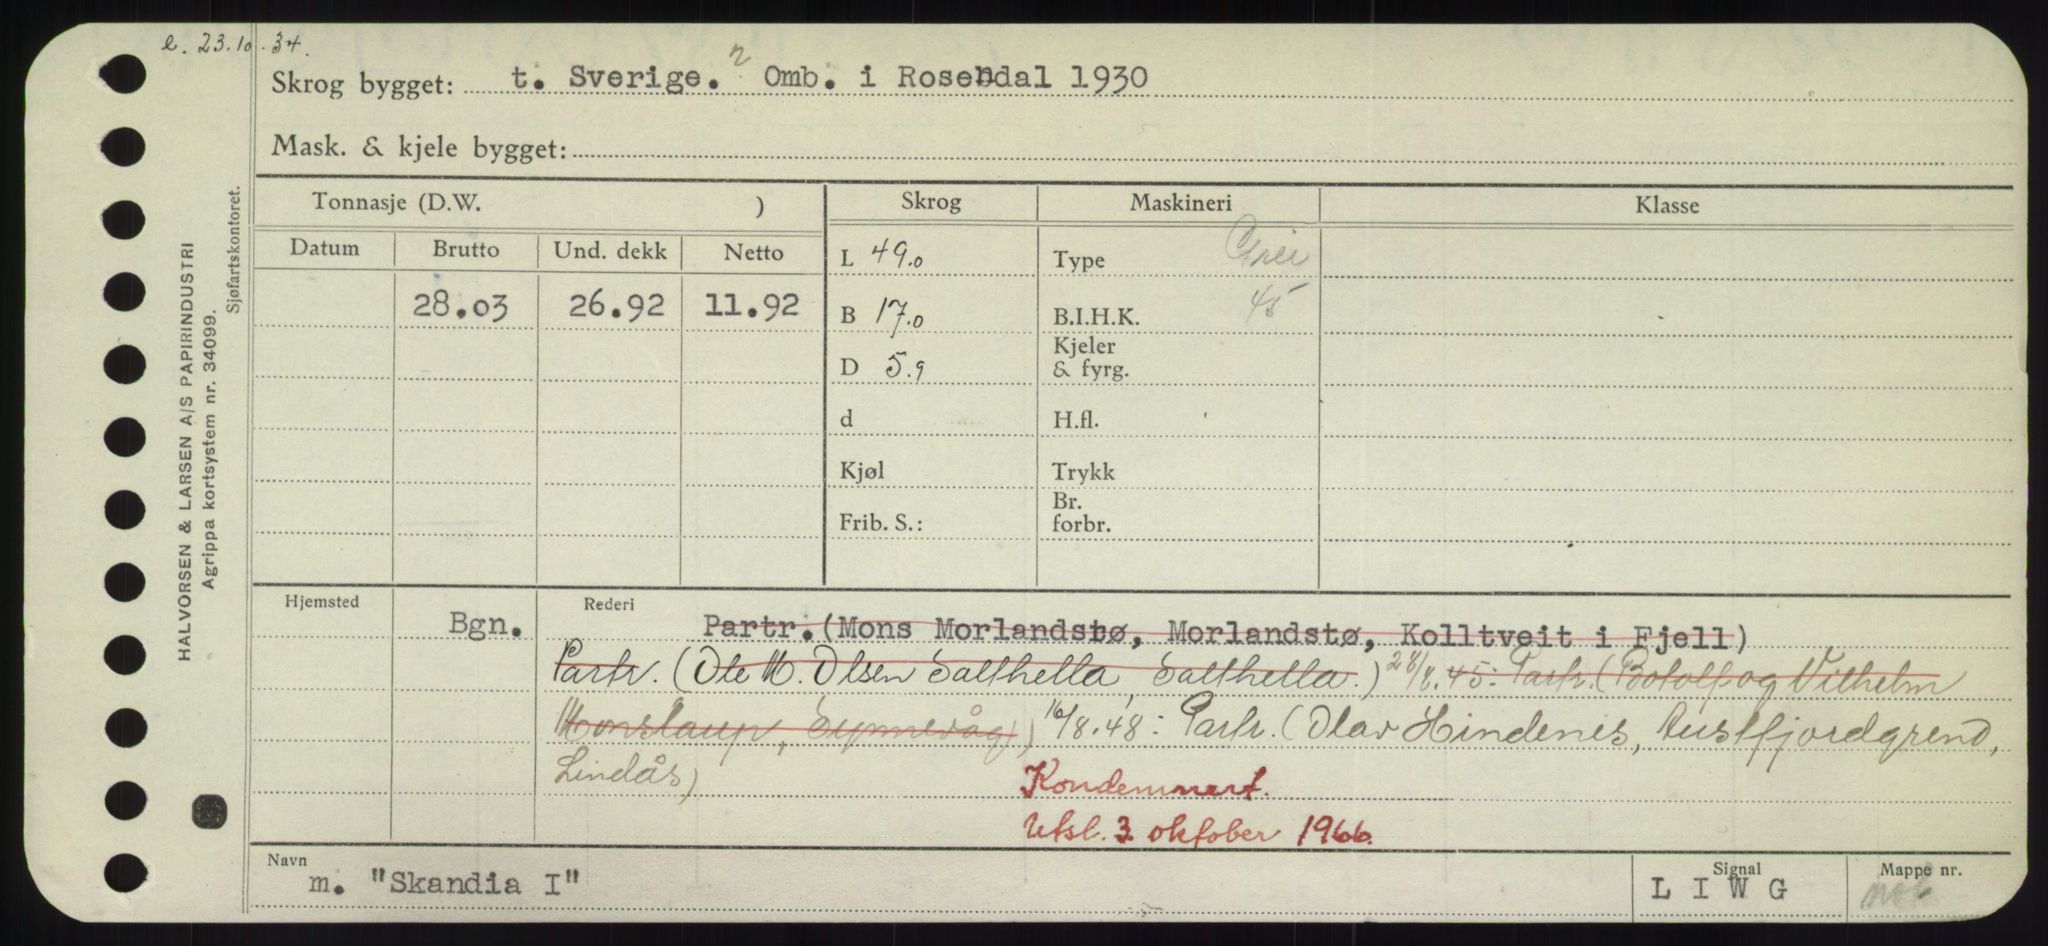 e. 23.10.34.
Skrog bygget: t. Sverige. Omb. i Rosendal 1930
Mask. & kjele bygget:
HALVORSEN & LARSEN A/S PAPIRINDUSTRI
Agrippa kortsystem nr. 34099.
Sjøfartskontoret.
Tonnasje (D.W. ) Skrog Maskineri Klasse
Datum Brutto Und. dekk Netto
L 49.0 Type
28.03 26.92 11.92
B 17.0 B.I.H.K. 45
D 5.9 Kjeler & fyrg.
d H.fl.
Kjøl Trykk
Frib. S.: Br. forbr.
Hjemsted Rederi
Bgn. Partr.(Mons Morlandstø, Morlandstø, Kolltveit i Fjell)
Partr. (Ole M. Olsen Salthella, Salthella.) 28/8.45: Partr. (Botolf og Vilhelm
16/8.48: Partr. (Olav Hindenes, Austfjordgrend,
Lindås)
Kondemnert.
Utsl. 3 oktober 1966.
Navn Signal Mappe nr.
m. "Skandia I" L I W G